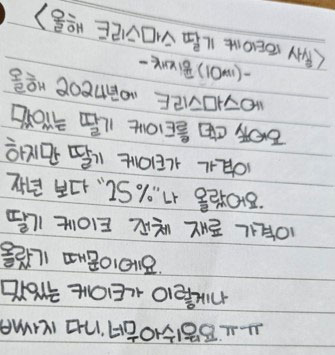 <올해 크리스마스 딸기 케이크의 사실>
-채지윤(10세)-
올해 2024년에 크리스마스에
맛있는 딸기 케이크를 먹고 싶어요
하지만 딸기 케이크가 가격이
작년 보다 "25%"나 올랐어요.
딸기 케이크 전체 재료 가격이
올랐기 때문이에요.
맛있는 케이크가 이렇게나
비싸지 다니, 너무 아쉬워요. ㅠㅠ